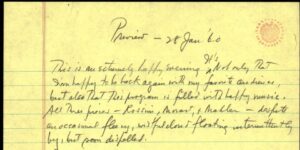 Preview — 28 Jan '60
This is an extremely happy evening. It's Not only that
I'm happy to be back again with my favorite audience,
but also that this program is filled with happy music.
All three pieces — Rossini, Mozart, & Mahler — despite
an occasional fleecy, wistful cloud floating intermittently
by, but soon dispelled.